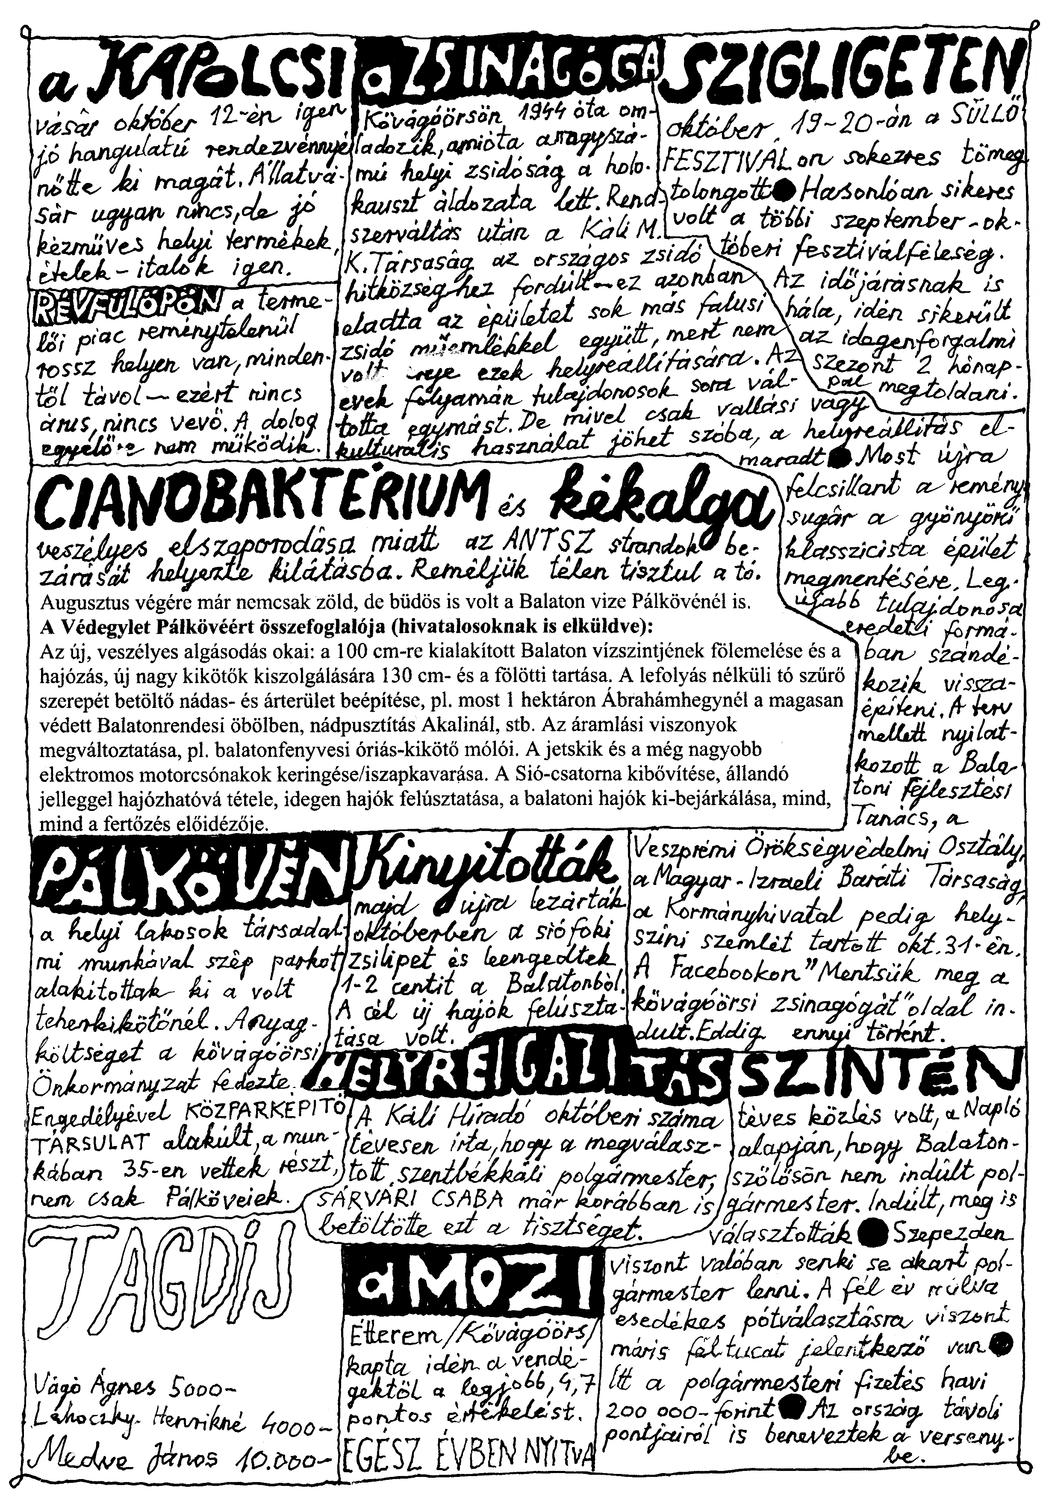 a KAPOLCSI
vásár október 12-èn igen
jó hangulatú rendezvénnyé
nőtte ki magát. Állatvá-
sár ugyan nincs, de jó
kézműves helyi termékek,
ételek - italok igen.
RÉVFÜLÖPÖN a terme-
lői piac reménytelenül
rossz helyen van, minden-
től távol - ezért nincs
árus, nincs vevő. A dolog
egyelőre nem működik.
a ZSINAGÓGA
Kővágóörsön 1944 óta om-
ladozik, amióta a nagyszá-
mú helyi zsidóság a holo-
kauszt áldozata lett. Rend-
szerváltás után a Káli M.
K. Társaság az országos zsidó
hitközséghez fordult - ez azonban
eladta az épületet sok más falusi
zsidó műemlékkel együtt, mert nem
volt ereje ezek helyreállítására. Az
evek folyamán tulajdonosok sora vál-
totta egymást. De mivel csak vallási vagy
kulturális használat jöhet szóba, a helyreállítás el-
maradt ● Most újra
felcsillant a remény-
sugár a gyönyörű
klasszicista épület
megmentésére. Leg-
újabb tulajdonosa
eredeti formá-
ban szándé-
kozik vissza-
építeni. A terv
mellett nyilat-
kozott a Bala-
toni Fejlesztési
Tanács, a
Veszprémi Örökségvédelmi Osztály,
a Magyar-Izraeli Baráti Társaság,
a Kormányhivatal pedig hely-
színi szemlét tartott okt. 31-én.
A Facebookon "Mentsük meg a
kővágóörsi zsinagógát" oldal in-
dult. Eddig ennyi történt.
SZIGLIGETEN
október 19-20-án a SÜLLŐ
FESZTIVÁLon sokezres tömeg
tolongott ● Hasonlóan sikeres
volt a többi szeptember-ok-
tóberi fesztiválféleség.
Az időjárásnak is
hála, idén sikerült
az idegenforgalmi
szezont 2 hónap-
pal megtoldani.
CIANOBAKTÉRIUM és kékalga
veszélyes elszaporodása miatt az ANTSZ strandok be-
zárását helyezte kilátásba. Reméljük télen tisztul a tó.
Augusztus végére már nemcsak zöld, de büdös is volt a Balaton vize Pálkövénél is.
A Védegylet Pálkövéért összefoglalója (hivatalosoknak is elküldve):
Az új, veszélyes algásodás okai: a 100 cm-re kialakított Balaton vízszintjének fölemelése és a
hajózás, új nagy kikötők kiszolgálására 130 cm- és a fölötti tartása. A lefolyás nélküli tó szűrő
szerepét betöltő nádas- és árterület beépítése, pl. most 1 hektáron Ábrahámhegynél a magasan
védett Balatonrendesi öbölben, nádpusztítás Akalinál, stb. Az áramlási viszonyok
megváltoztatása, pl. balatonfenyvesi óriás-kikötő mólói. A jetskik és a még nagyobb
elektromos motorcsónakok keringése/iszapkavarása. A Sió-csatorna kibővítése, állandó
jelleggel hajózhatóvá tétele, idegen hajók felúsztatása, a balatoni hajók ki-bejárkálása, mind,
mind a fertőzés előidézője.
PÁLKÖVÉN
a helyi lakosok társadal-
mi munkával szép parkot
alakítottak ki a volt
teherkikötőnél. Anyag-
költséget a kővágóörsi
Önkormányzat fedezte.
Engedélyével KÖZPARKÉPITŐ
TÁRSULAT alakult, a mun-
kában 35-en vettek részt,
nem csak Pálköveiek.
Kinyitották
majd újra lezárták
októberben a siófoki
zsilipet és leengedtek
1-2 centit a Balatonból.
A cél új hajók felúszta-
tása volt.
HELYREIGAZITÁS
A Káli Híradó októberi száma
tévesen írta, hogy a megválasz-
tott szentbékkáli polgármester,
SÁRVÁRI CSABA már korábban is
betöltötte ezt a tisztséget.
SZINTÉN
téves közlés volt, a Napló
alapján, hogy Balaton-
szőlősön nem indult pol-
gármester. Indult, meg is
választották ● Szepezden
viszont valóban senki se akart pol-
gármester lenni. A fél év múlva
esedékes pótválasztásra viszont
máris féltucat jelentkező van ●
Itt a polgármesteri fizetés havi
200 000-forint ● Az ország távoli
pontjairól is beneveztek a verseny-
be.
TAGDÍJ
Vágó Ágnes 5000-
Lahoczky Henrikné 4000-
Medve János 10.000-
a MOZI
Étterem/Kővágóörs/
kapta idén a vendé-
gektől a legjobb, 4,7
pontos értékelést.
EGÉSZ ÉVBEN NYITVA